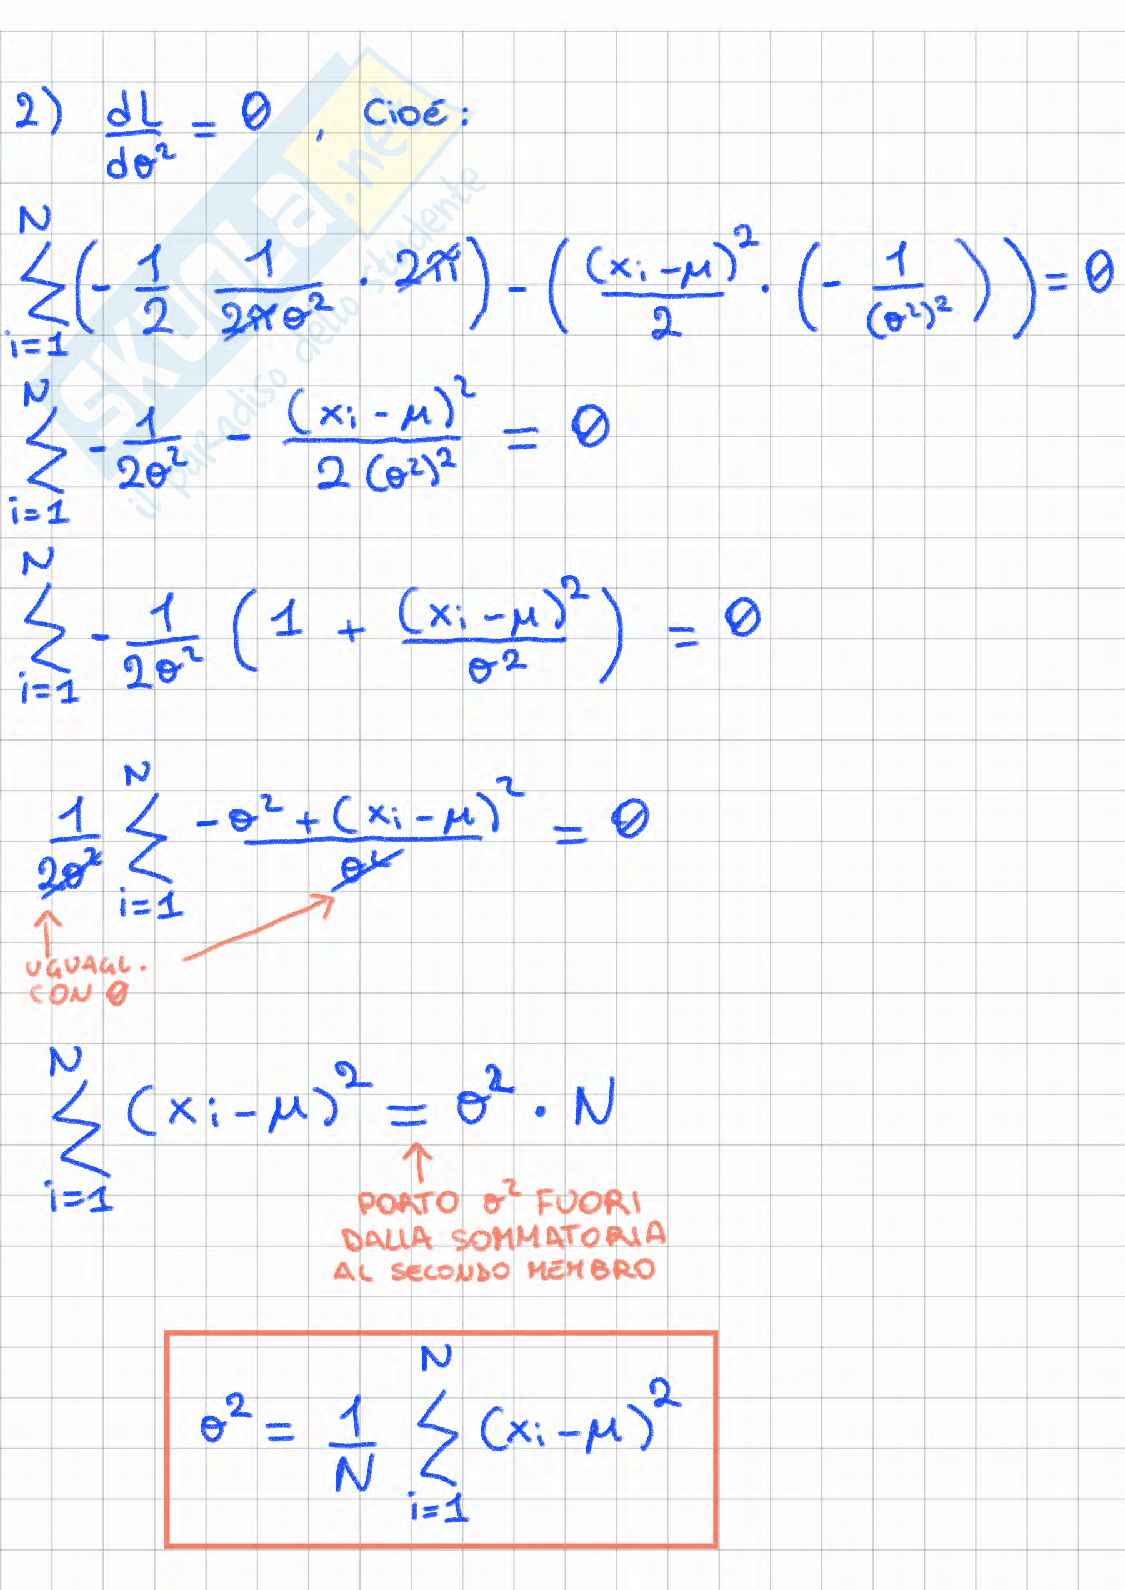 2) dL/dσ² = 0 , Cioé:
∑_{i=1}^{N} (- 1/2 1/(2πσ²) · 2π) - ((xi-μ)²/2 · (- 1/(σ²)²)) ) = 0
∑_{i=1}^{N} - 1/(2σ²) - (xi-μ)²/(2(σ²)²) = 0
∑_{i=1}^{N} - 1/(2σ²) (1 + (xi-μ)²/σ²) = 0
1/(2σ²) ∑_{i=1}^{N} (-σ² + (xi-μ)²)/σ² = 0
UGUAGL.
CON 0
∑_{i=1}^{N} (xi-μ)² = σ² · N
PORTO σ² FUORI
DALLA SOMMATORIA
AL SECONDO MEMBRO
σ² = 1/N ∑_{i=1}^{N} (xi-μ)²
SKUOLA.net
il paradiso dello studente